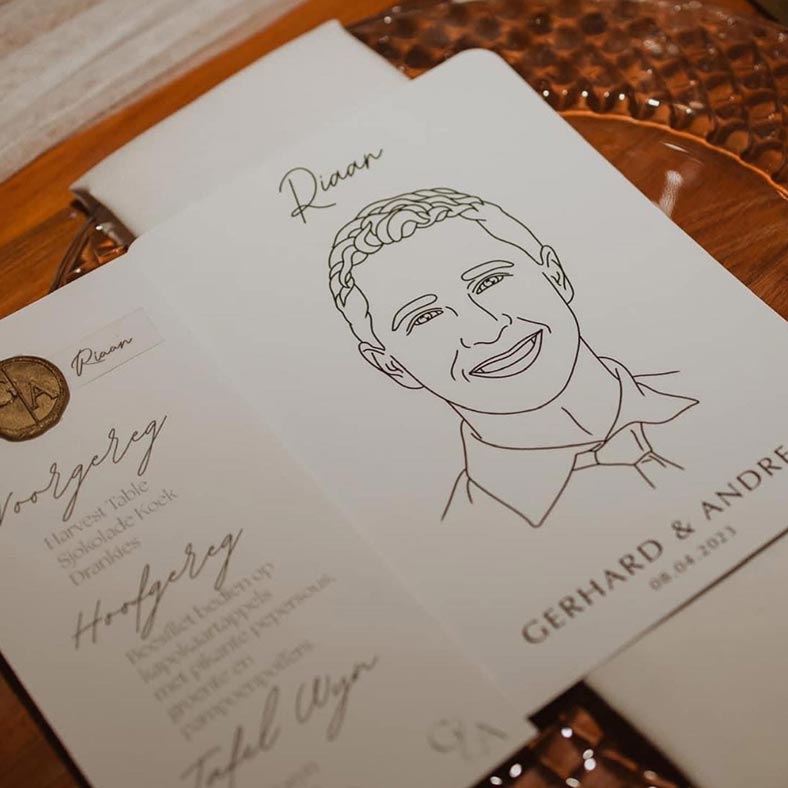 Riaan
GERHARD & ANDRE
08.04.2023
Riaan
G A
Voorgereg
Harvest Table
Sjokolade Koek
Drankies
Hoofgereg
Beesfilet bedien op
kapokaartappels
met pikante pepersous,
groente en
pampoenpoffers.
Tafel Wyn
G A